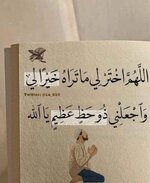 اللَّهُمَّ اخْتَرْ لِي مَا تَرَاهُ خَيْرًا لِي
وَاجْعَلْنِي ذُو حَظٍ عَظِيمٍ يَا اللَّه